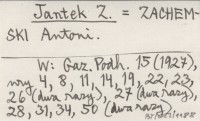 Jantek Z. = ZACHEM-
SKI Antoni.
W: Gaz. Podh. 15 (1927),
nry 4, 8, 11, 14, 19, 22, 23,
26 (dwa razy), 27 (dwa razy),
28, 31, 34, 50 (dwa razy)